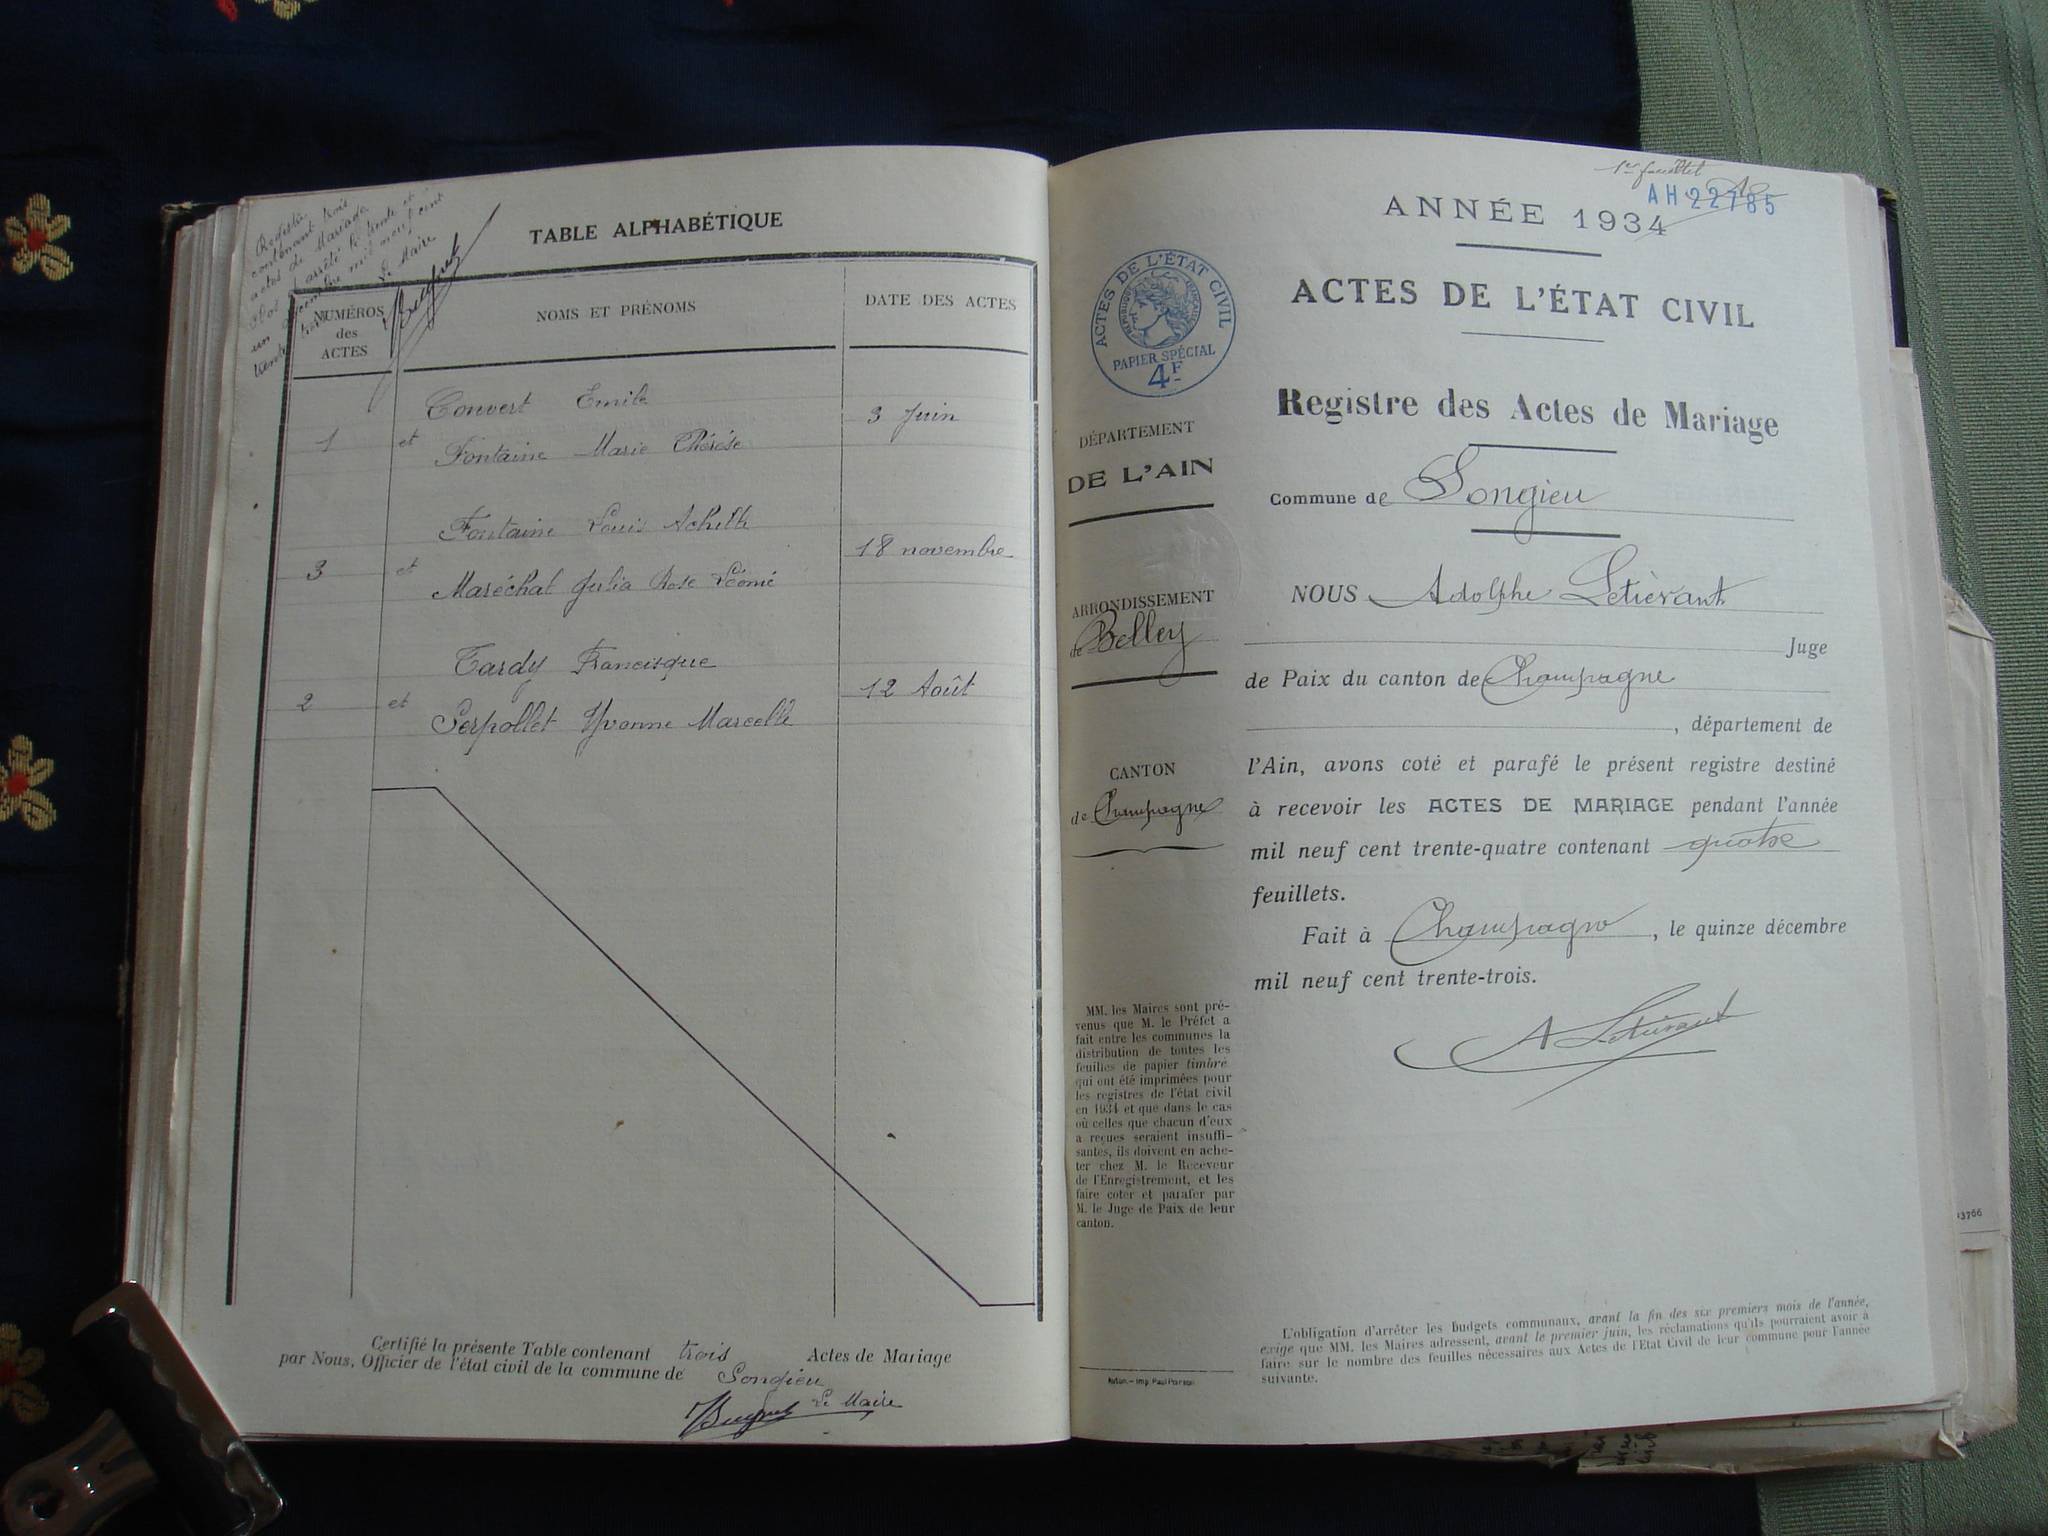 Registre
contenant trois
actes de Mariage
clos et arrêté le trente et
un décembre mil neuf cent
trente trois
Le Maire
TABLE ALPHABÉTIQUE
NUMÉROS
des
ACTES
NOMS ET PRÉNOMS
DATE DES ACTES
Convert Emile
1 et 3 Juin
Fontaine Marie Thérèse
Fontaine Louis Achille
3 et 18 novembre
Maréchal Julia Rose Léoné
Tardy Francisque
2 et 12 Août
Serpollet Yvonne Marcelle
Certifié la présente Table contenant trois Actes de Mariage
par Nous, Officier de l'état civil de la commune de Songieu
Le Maire
1er feuillet
AH 22785
ANNÉE 1934
ACTES DE L'ÉTAT CIVIL
RÉPUBLIQUE FRANÇAISE
PAPIER SPÉCIAL
4F
ACTES DE L'ÉTAT CIVIL
Registre des Actes de Mariage
DÉPARTEMENT
DE L'AIN
Commune de Songieu
ARRONDISSEMENT
de Belley
CANTON
de Champagne
NOUS Adolphe Letiévant
Juge
de Paix du canton de Champagne
, département de
l'Ain, avons coté et parafé le présent registre destiné
à recevoir les ACTES DE MARIAGE pendant l'année
mil neuf cent trente-quatre contenant quatre
feuillets.
Fait à Champagne, le quinze décembre
mil neuf cent trente-trois.
A Letiévant
MM. les Maires sont pré-
venus que M. le Préfet a
fait entre les communes la
distribution de toutes les
feuilles de papier timbré
qui ont été imprimées pour
les registres de l'état civil
en 1934 et que dans le cas
où celles que chacun d'eux
a reçues seraient insuffi-
santes, ils doivent en ache-
ter chez M. le Receveur
de l'Enregistrement, et les
faire coter et parafer par
M. le Juge de Paix de leur
canton.
Autun. — Imp. Paul Poirson
L'obligation d'arrêter les Budgets communaux, avant la fin des six premiers mois de l'année,
exige que MM. les Maires adressent, avant le premier juin, les réclamations qu'ils pourraient avoir à
faire sur le nombre des feuilles nécessaires aux Actes de l'Etat Civil de leur commune pour l'année
suivante.
13766